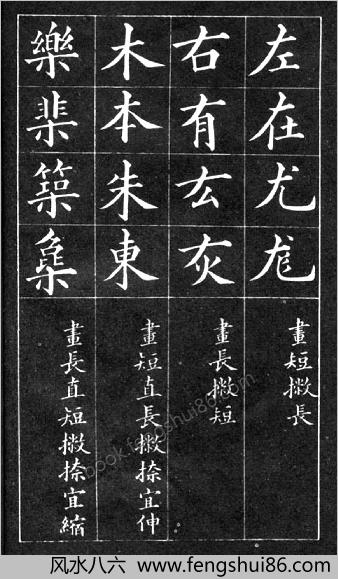 左在尤尨
畫短撇長
右有厷灰
畫長撇短
木本朱東
畫短直長撇捺宜伸
樂棐築
畫長直短撇捺宜縮
book.fengshui86.com
风水八六 www.fengshui86.com